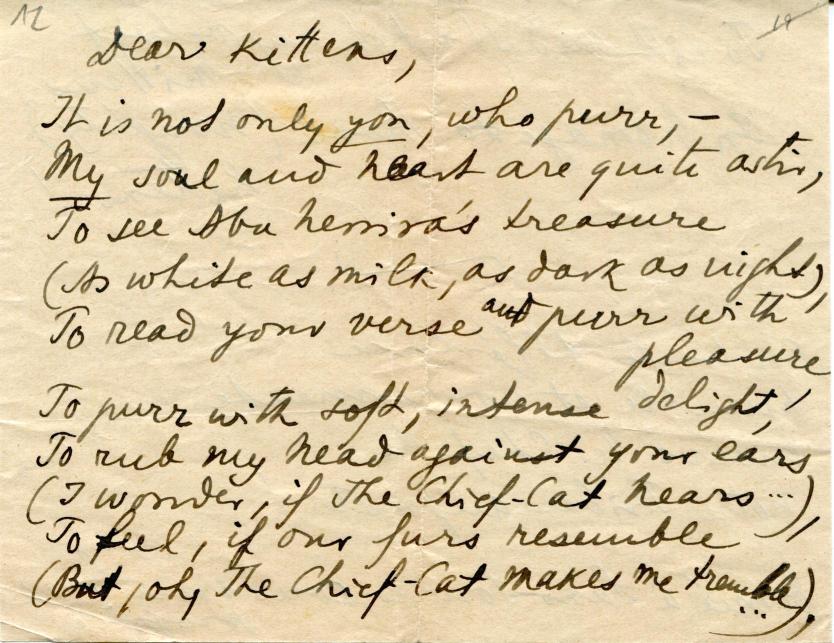 12
19
Dear Kittens,
It is not only you, who purr, –
My soul and heart are quite astir,
To see Abu herrira's treasure
(As white as milk, as dark as night),
To read your verse and purr with
pleasure
To purr with soft, intense delight,!
To rub my head against your ears
(I wonder, if The Chief-Cat hears...),
To feel, if our furs resemble
(But, oh, The Chief-Cat makes me tremble...).